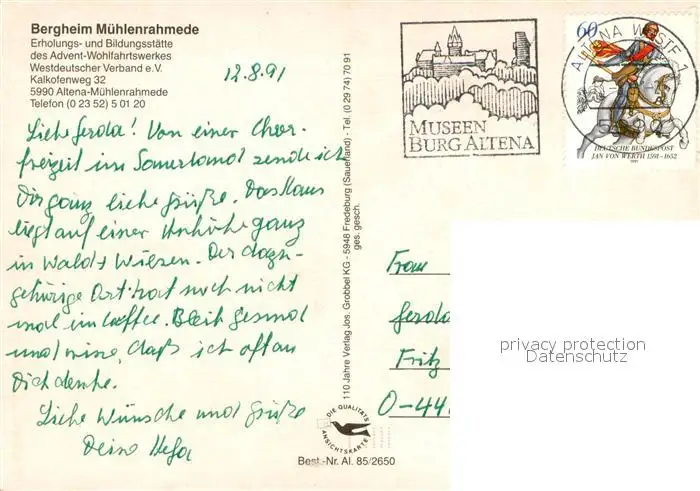 Bergheim Mühlenrahmede
Erholungs- und Bildungsstätte
des Advent-Wohlfahrtswerkes
Westdeutscher Verband e.V.
Kalkofenweg 32
5990 Altena-Mühlenrahmede
Telefon (0 23 52) 5 01 20
12.8.91
Liebe Gerda! Von einer Chor-
freizeit im Sauerland sende ich
Dir ganz liebe Grüße. Das Haus
liegt auf einer Anhöhe ganz
in Wald + Wiesen. Der dazu-
gehörige Ort hat noch nicht
mal ein Caffee. Bleib gesund
und wisse, daß ich oft an
Dich denke.
Liebe Wünsche und Grüße
Deine
110 Jahre Verlag Jos. Grobbel KG - 5948 Fredeburg (Sauerland) - Tel. (0 29 74) 70 91
ges. gesch.
MUSEEN
BURG ALTENA
ALTENA, WESTF 1
60
DEUTSCHE BUNDESPOST
JAN VON WERTH 1591-1652
1991
Frau
Gerda
Fritz
O-44
privacy protection
Datenschutz
DIE QUALITÄTS
ANSICHTSKARTE
Best.-Nr. Al. 85/2650